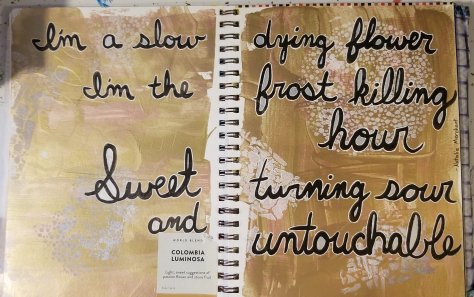 I'm a slow dying flower
I'm the frost killing
hour
Sweet turning sour
and untouchable
Natalie Merchant
WORLD BLEND
COLOMBIA
LUMINOSA
Light, sweet suggestions of
passion flower and stone fruit